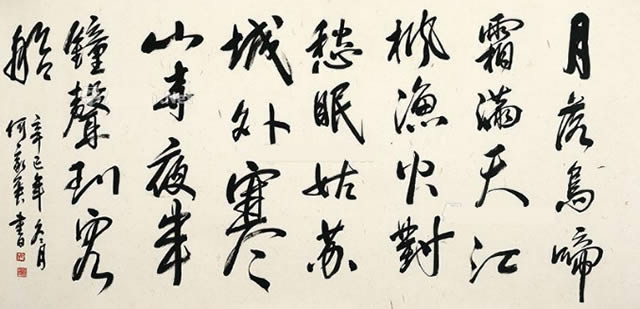 月落烏啼
霜滿天江
楓漁火對
愁眠姑苏
城外寒
山寺夜半
鐘聲到客
船
辛巳年冬月
何家英書